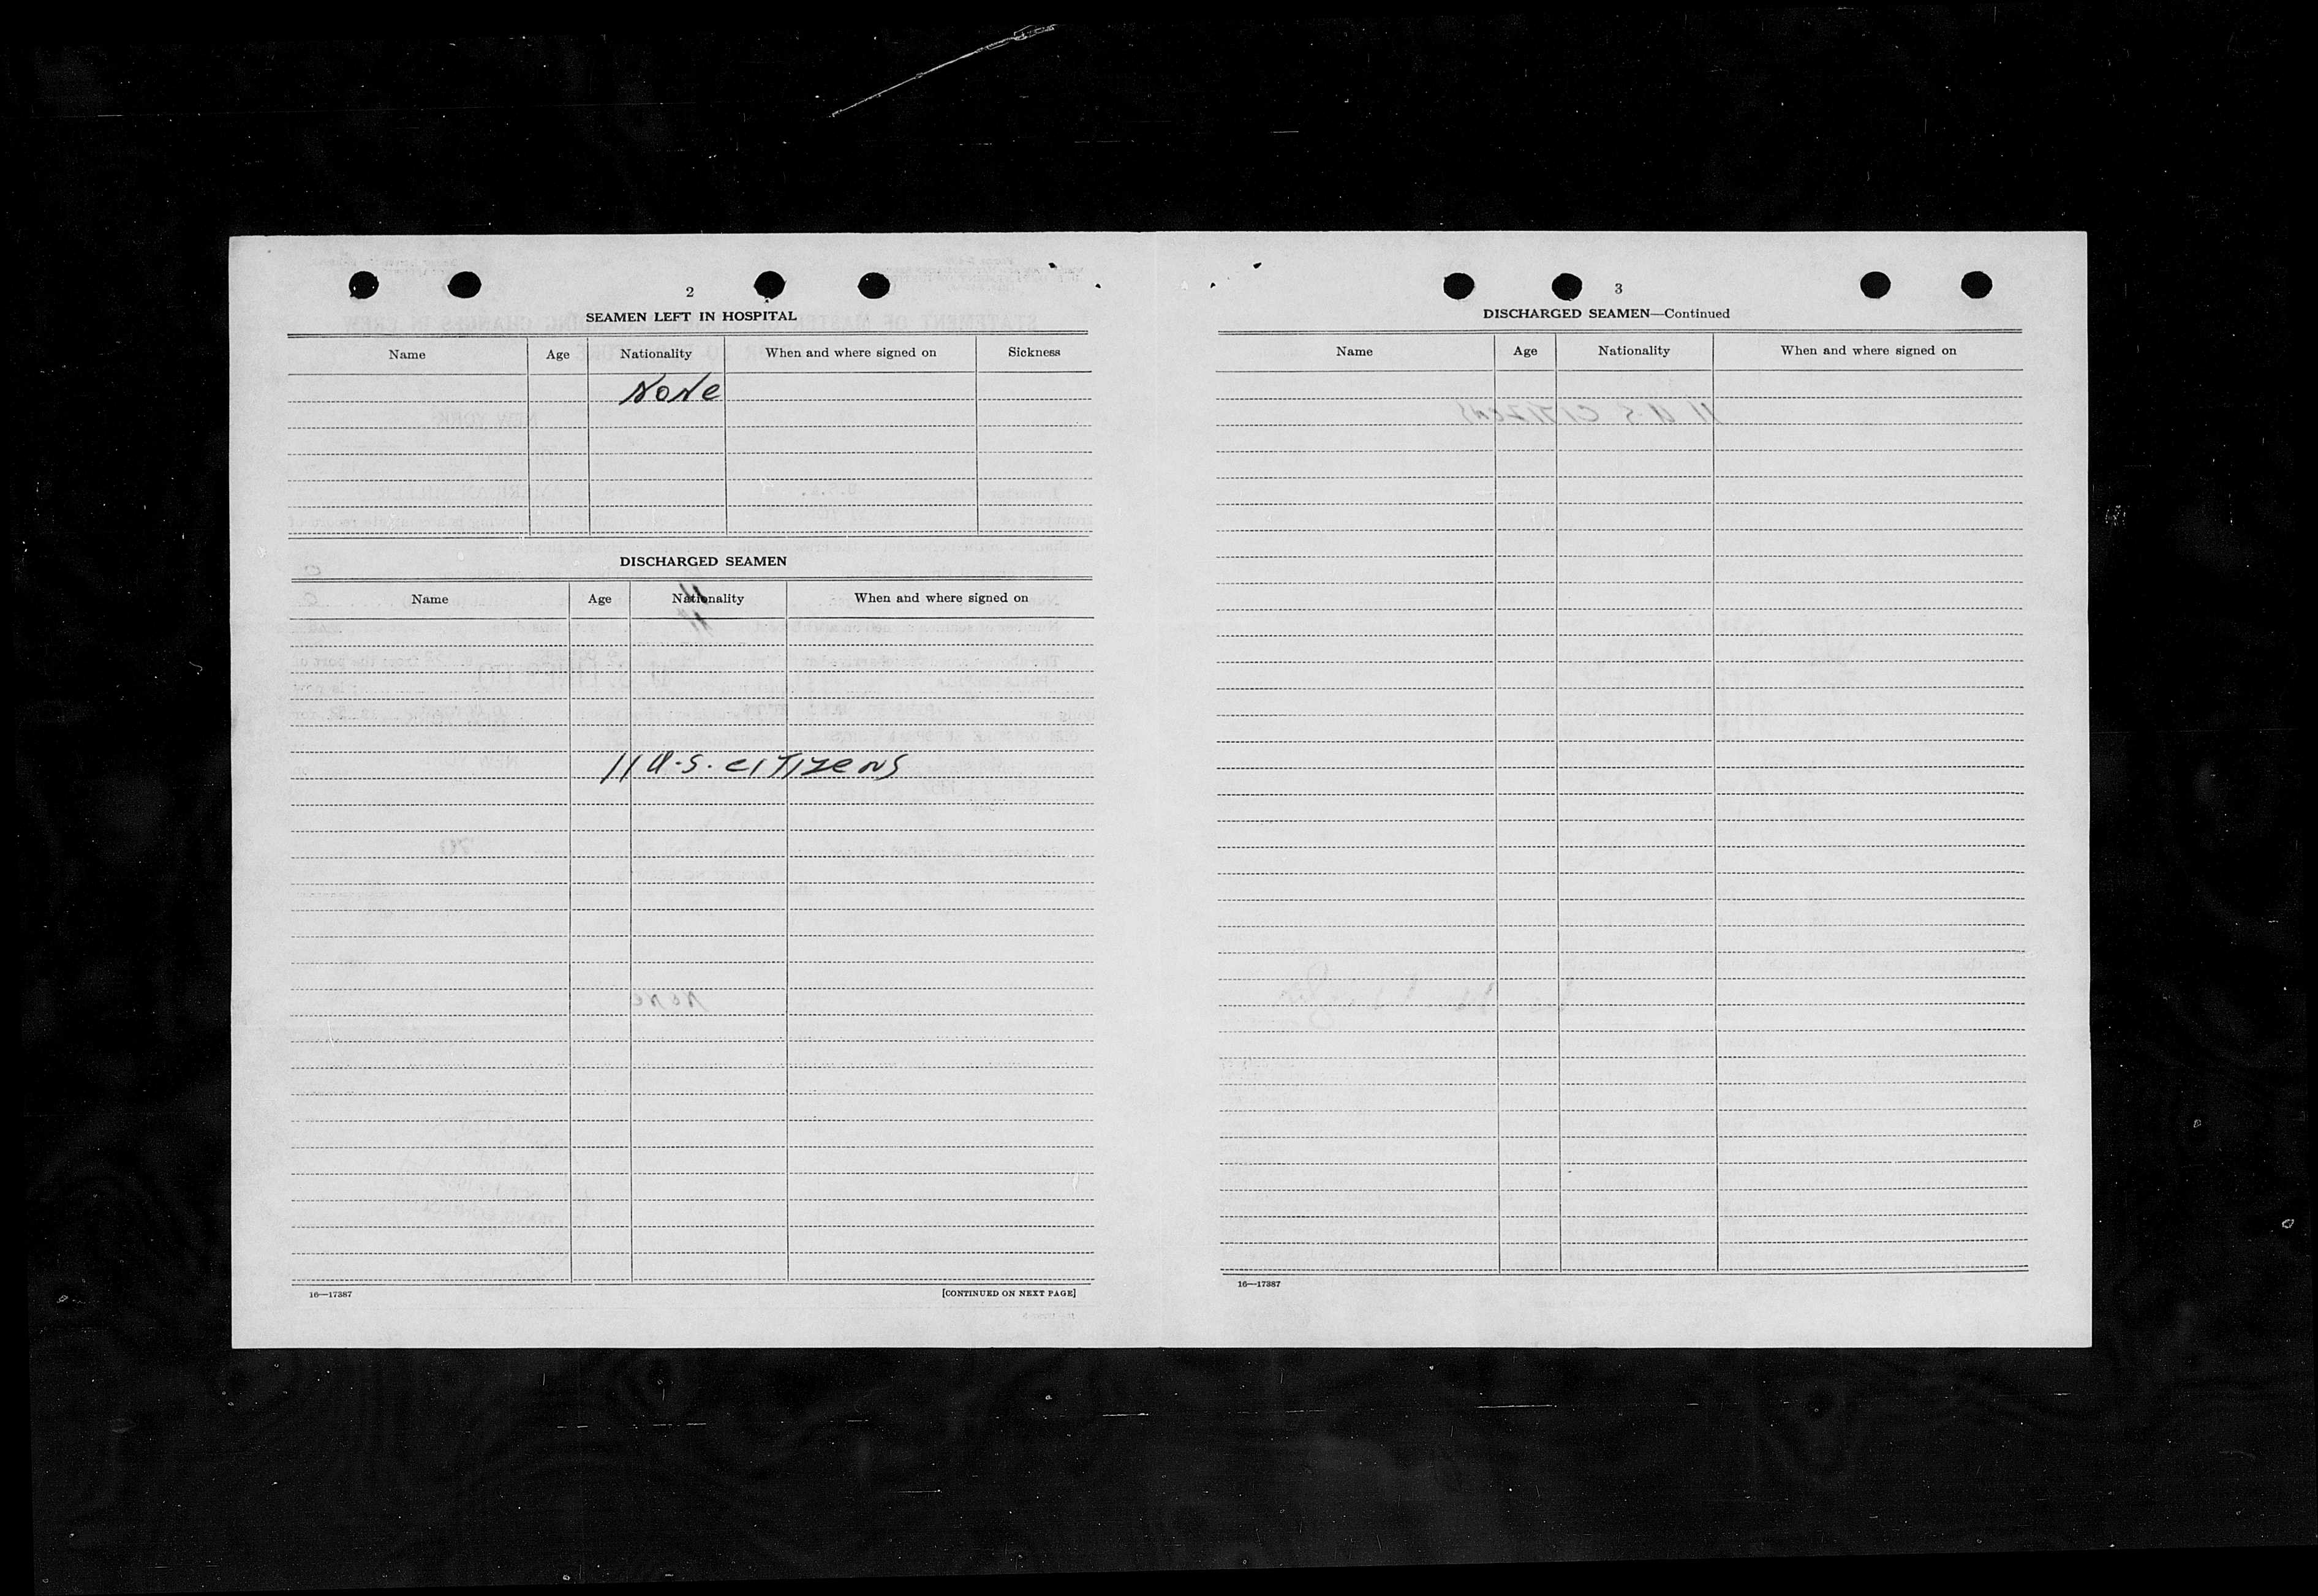 2
SEAMEN LEFT IN HOSPITAL
Name Age Nationality When and where signed on Sickness
None
DISCHARGED SEAMEN
Name Age Nationality When and where signed on
11 U.S. CITIZENS
16—17387 [CONTINUED ON NEXT PAGE]
3
DISCHARGED SEAMEN—Continued
Name Age Nationality When and where signed on
16—17387